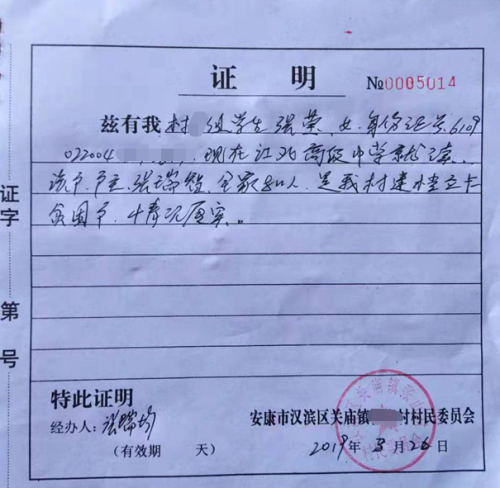 证 明
№0005014
兹有我村 组学生张荣,女,身份证号6109
022004 ,现在江北高级中学就读。
该户户主,张 全家 人,是我村建档立卡
贫困户,情况属实。
证字第 号
特此证明
经办人:张
安康市汉滨区关庙镇 村村民委员会
(有效期 天)
2019年3月26日